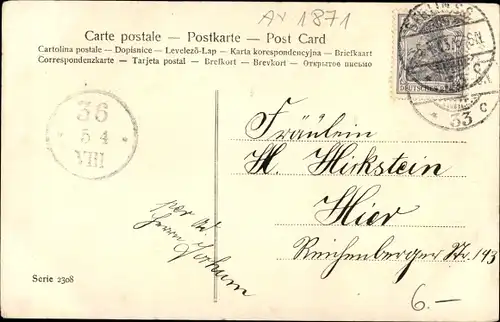 AV 1871
Carte postale – Postkarte – Post Card
Cartolina postale – Dopisnice – Levelező-Lap – Karta korespondencyjna – Briefkaart
Correspondenzkarte – Tarjeta postal – Brefkort – Brevkort – Открытое письмо
BERLIN S.
DEUTSCHES
* 33 c
36
* 5 4 *
VIII
Fräulein
H. Hirkstein
Hier
Reichenberger Str. 143
per Ad.
Herrn
Serie 2308
6.–